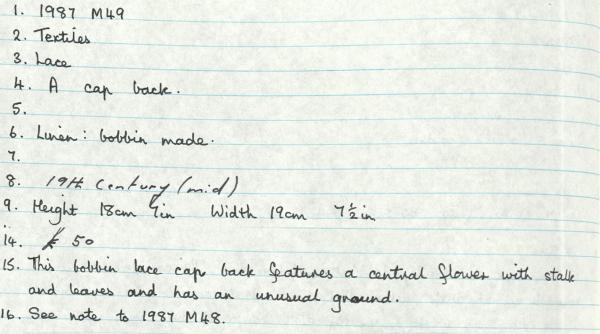 1. 1987 M49
2. Textiles
3. Lace
4. A cap back.
5.
6. Linen: bobbin made.
7.
8. 19th Century (mid)
9. Height 18cm 7in Width 19cm 7½in
14. £ 50
15. This bobbin lace cap back features a central flower with stalk
and leaves and has an unusual ground.
16. See note to 1987 M48.